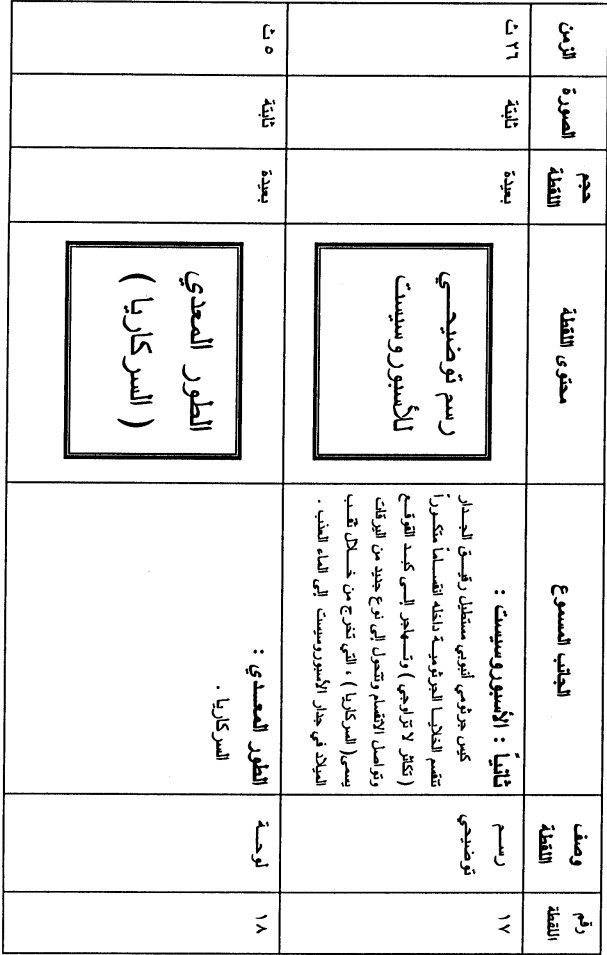 رقم اللقطة
وصف اللقطة
الجانب المسموع
محتوى اللقطة
حجم اللقطة
الصورة
الزمن
١٧
رسم
توضيحي
ثانياً : الأسبوروسيست :
كيس جرثومي أنبوبي مستطيل رقيق الجدار
تنقسم الخلايا الجرثومية داخله انقساماً متكرراً
( تكاثر لا تزاوجي ) وتهاجر إلى كبد القوقع
وتواصل الانقسام وتتحول إلى نوع جديد من اليرقات
يسمى ( السركاريا ) ، التي تخرج من خلال ثقب
الميلاد في جدار الأسبوروسيست إلى الماء العذب .
رسم توضيحي
للأسبوروسيست
بعيدة
ثابتة
٢٦ ث
١٨
لوحة
الطور المعدي :
السركاريا .
الطور المعدي
( السركاريا )
بعيدة
ثابتة
٥ ث